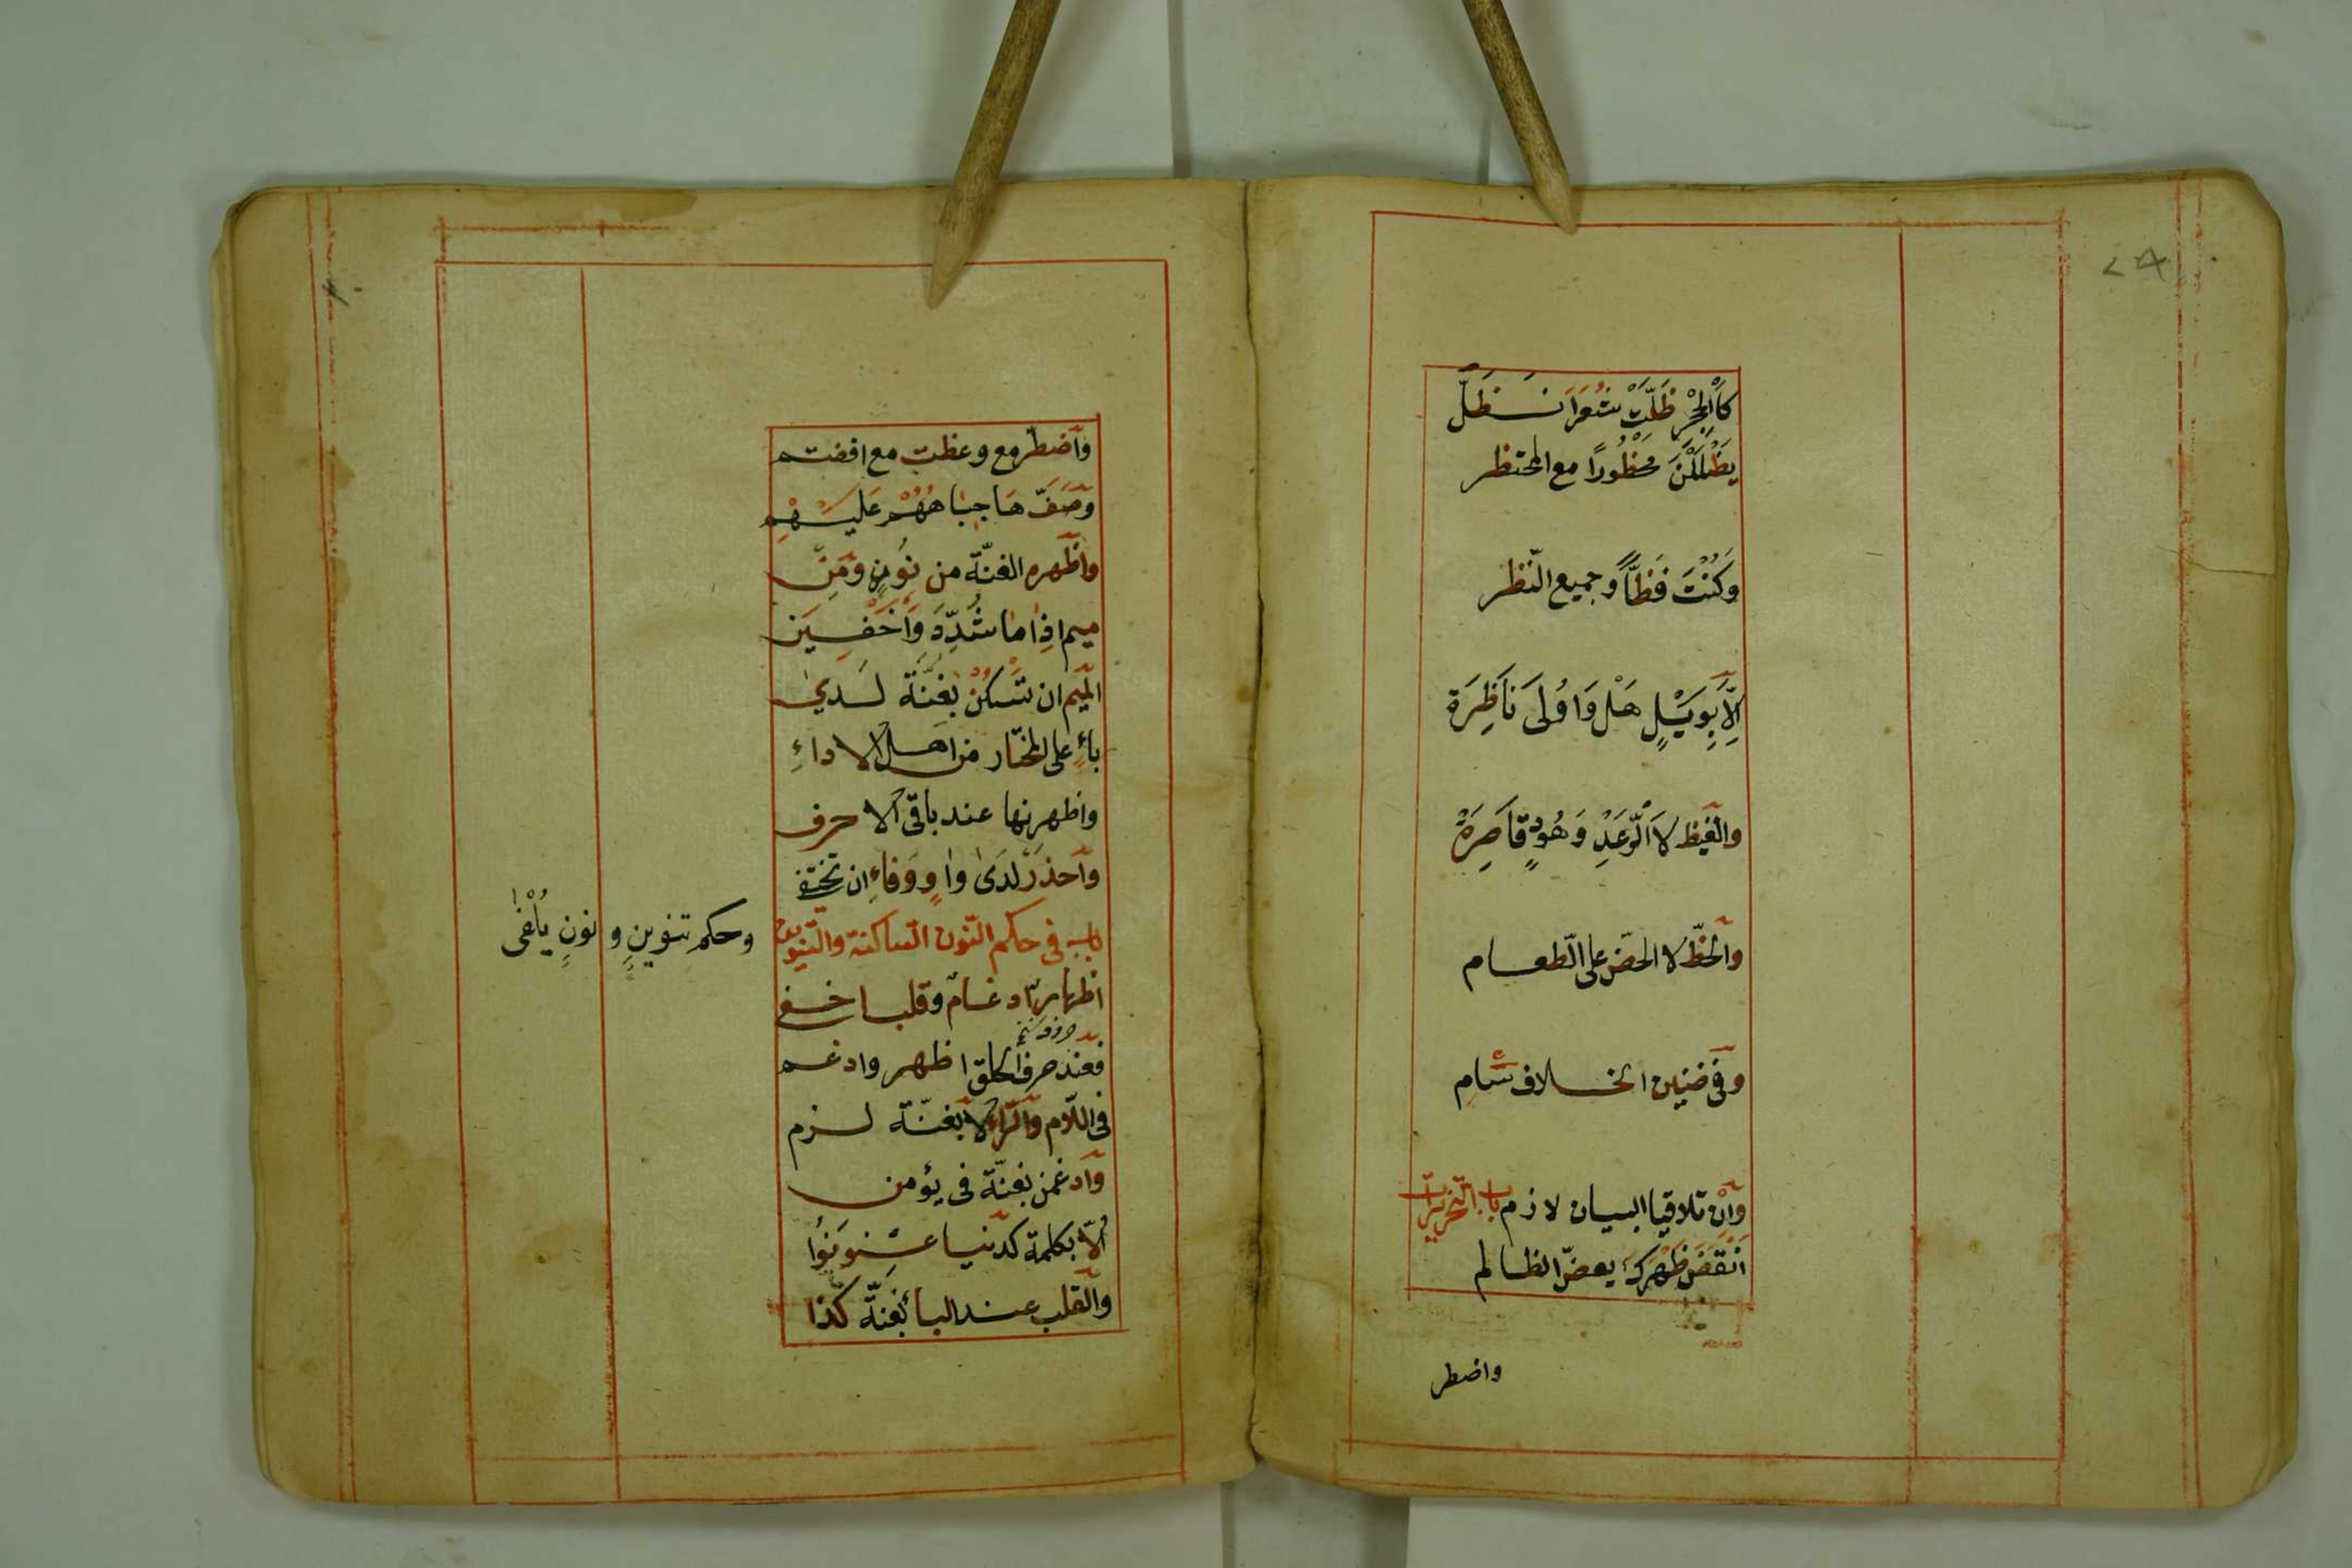 كَاَلْحِجْرِ ظَلَّتْ شُعَرَا نَــظَلُّ
يَظْلَلْنَ مَحْظُورًا مع المحتظر
وَكُنْتَ فَظًّا وجميع النّظر
اِلَّا بِوَيْلٍ هَلْ وَاُولَى نَاظِرَة
والغيظ لَا اَلرَّعَدِ وَهُودٍ قَاصِرَةْ
والحظّ لا الحضّ على الطّعــام
وفى ضنين الخــلاف سَامِ
وَاِنْ تلاقيا البيان لازم باب التحزيرات
اَنْقَضَ ظَهْرَكَ يعضّ الظالم
واضطر
واضطرّ مع وعظت مع افضتم
وَصَفِّ هَا جِبَاهُهُمْ عَلَيْهِم
واَظهره الغنّة من نُونٍ وَمِنْ
ميم اِذَا مَا شُدِّدَ وَاَخْفِيَن
الميم ان تَسْكُنْ بِغُنَّة لَــدى
باءٍ على المختار من اهل الاداءِ
واظهرنها عند باقى الاحرف
واحذر لَدَى واوٍ وَفاءٍ ان تختفى
باب فى حكم النون السّاكنة والتنوين
وحكم تنوينٍ و نونٍ يُلْفَى
اظهارٌ ادغــامٌ وقلب اخــفى
فعند حرف الحلق اظهر وادغــم
فى اللّام والرّاء لا بغنّــة لــزم
وادغمن بغنّة فى يؤمن
اِلَّا بكلمة كدنيــا عَــنْوَنُوا
والقلب عنــد البــا بِغُنَّة كَذَا